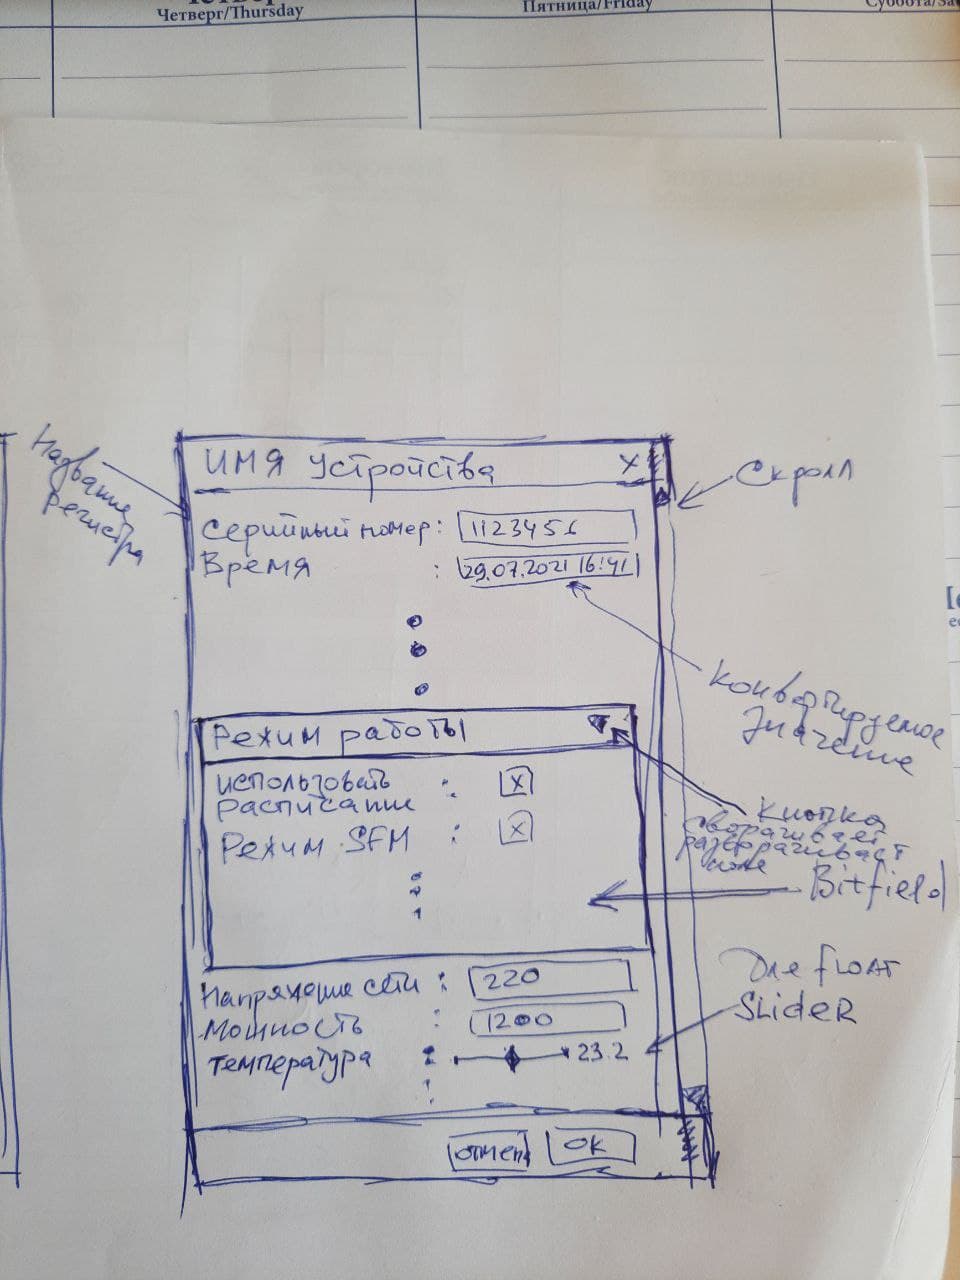 Четверг/Thursday
Пятница/Friday
Название
регистра
ИМЯ устройства
X
Скролл
Серийный номер:
1123456
Время
:
29.07.2021 16:41
Конвертируемое
значение
Режим работы
использовать
расписание
:
X
Режим SFM
:
X
Кнопка
сворачивает
разворачивает
Bitfield
Напряжение сети :
220
Для float
Slider
Мощность
:
1200
Температура
:
23.2
отмена
ОК